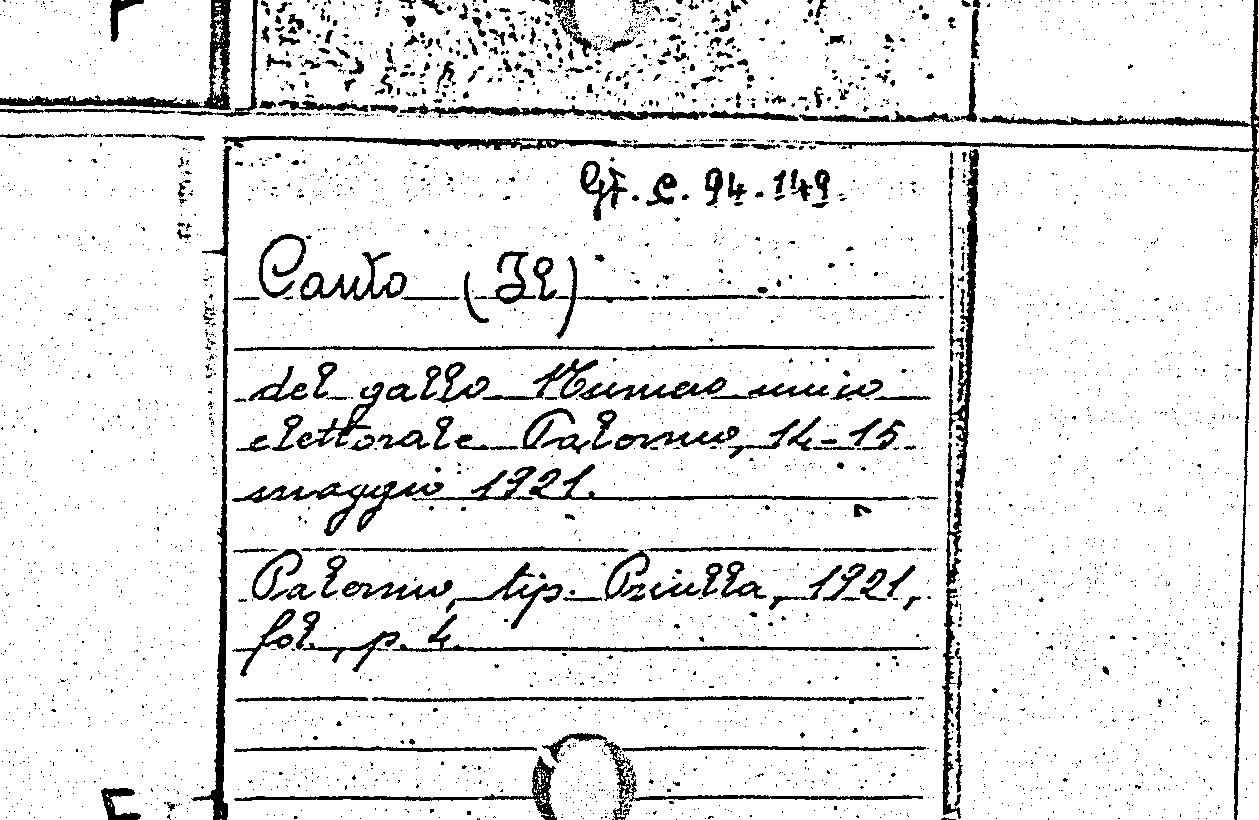 F
Gf. C. 94.149
Canto (Il)
del gallo Numero unico
elettorale Palermo, 14-15
maggio 1921.
Palermo, tip. Priulla, 1921,
fol., p. 4.